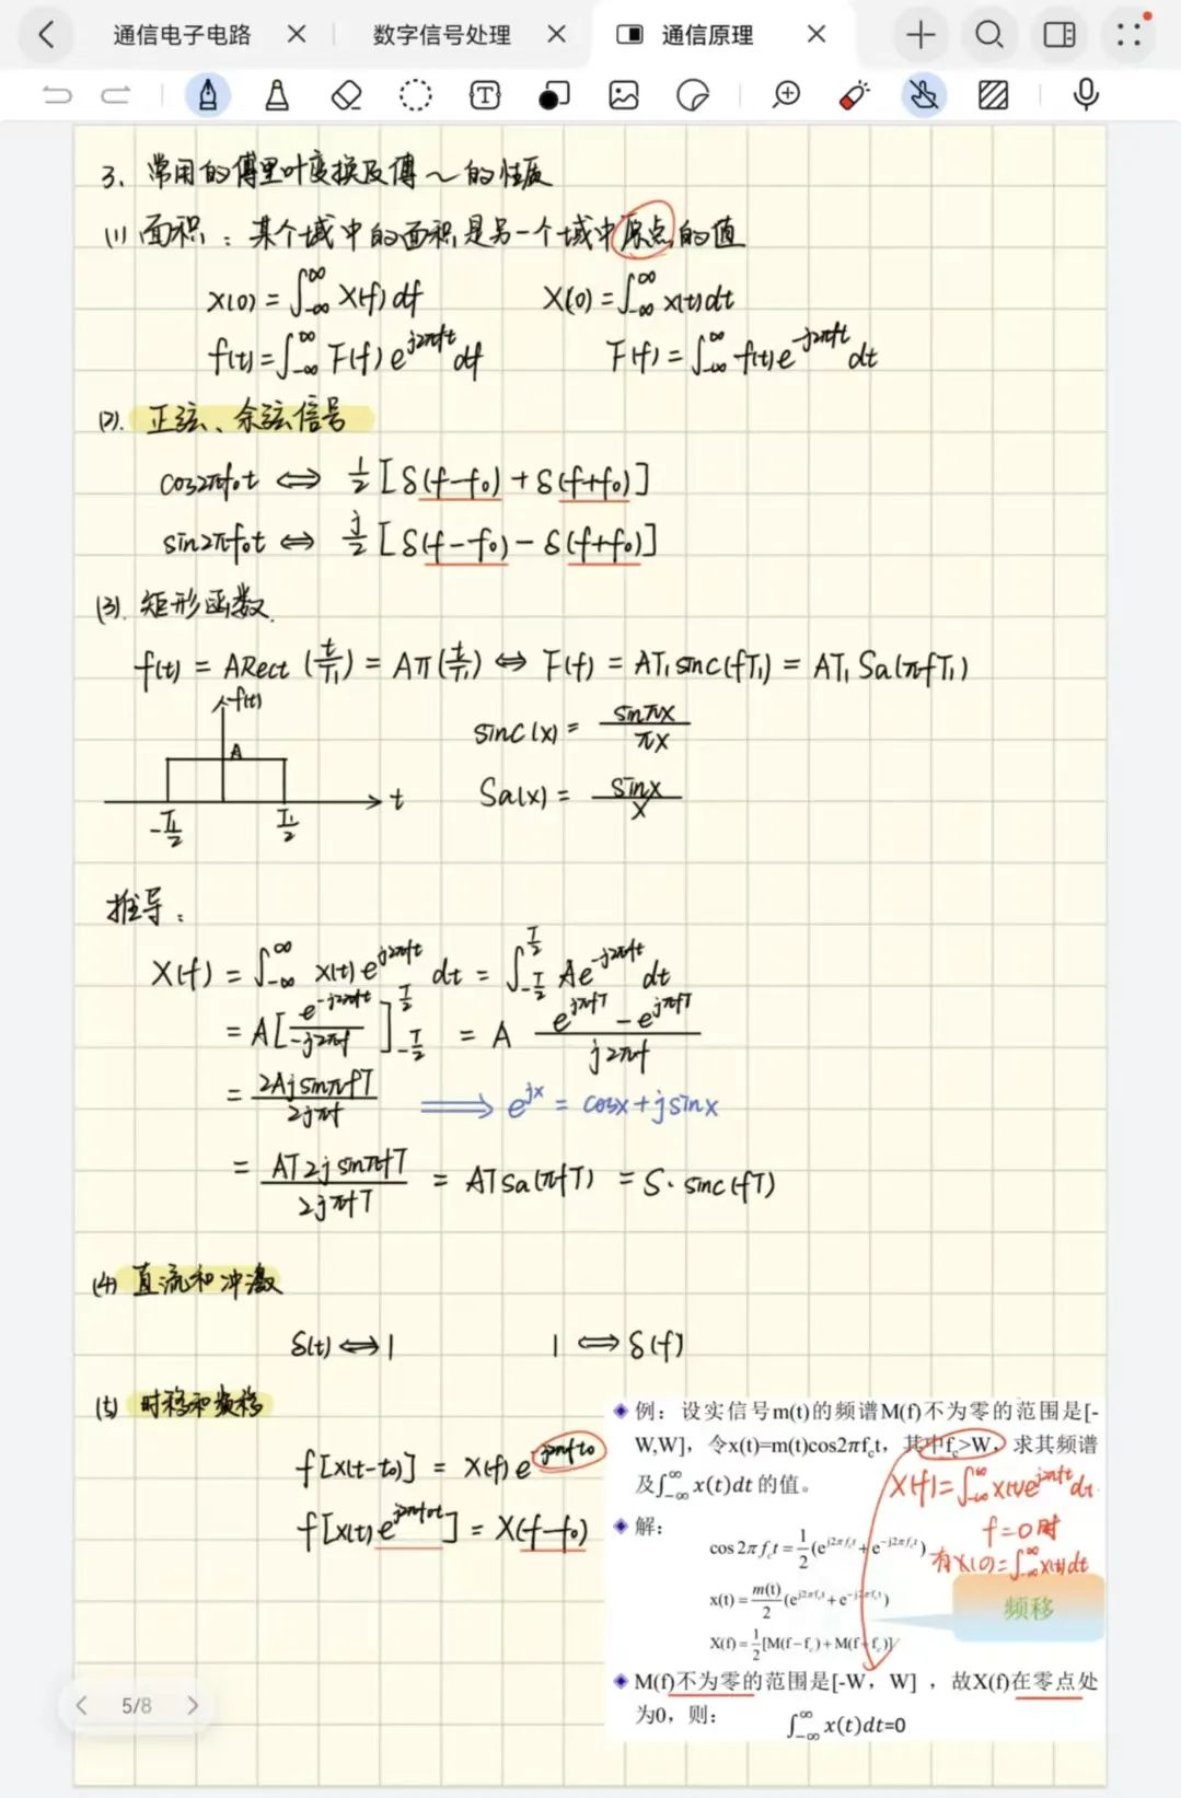 通信电子电路 数字信号处理 通信原理
3、常用的傅里叶变换及傅～的性质
(1) 面积：某个域中的面积是另一个域中原点的值
x(0) = ∫_{-∞}^{∞} X(f) df X(0) = ∫_{-∞}^{∞} x(t) dt
f(t) = ∫_{-∞}^{∞} F(f) e^{j2πft} df F(f) = ∫_{-∞}^{∞} f(t) e^{-j2πft} dt
(2). 正弦、余弦信号
cos2πf₀t ⇔ 1/2 [δ(f-f₀) + δ(f+f₀)]
sin2πf₀t ⇔ j/2 [δ(f-f₀) - δ(f+f₀)]
(3). 矩形函数.
f(t) = ARect (t/T₁) = Aπ(t/T₁) ⇔ F(f) = AT₁ sinc(fT₁) = AT₁ Sa(πfT₁)
f(t)
A
-T₁/2 T₁/2 t
sinc(x) = sinπx/πx
Sa(x) = sinx/x
推导：
X(f) = ∫_{-∞}^{∞} x(t) e^{j2πft} dt = ∫_{-T/2}^{T/2} Ae^{-j2πft} dt
= A[e^{-j2πft}/-j2πf]_{-T/2}^{T/2} = A (e^{jπfT} - e^{jπfT})/j2πf
= 2Aj sinπfT/2jπf ⟹ e^{jx} = cosx + jsinx
= AT2j sinπfT/2jπfT = ATSa(πfT) = S·sinc(fT)
(4) 直流和冲激
δ(t) ⇔ 1 1 ⇔ δ(f)
(5) 时移和频移
f[x(t-t₀)] = X(f) e^{-j2πft₀}
f[x(t) e^{j2πf₀t}] = X(f-f₀)
例：设实信号m(t)的频谱M(f)不为零的范围是[-
W,W]，令x(t)=m(t)cos2πf_c t，其中f_c>W，求其频谱
及∫_{-∞}^{∞} x(t)dt 的值。
X(f) = ∫_{-∞}^{∞} x(t) e^{j2πft} dt
f=0时
有X(0) = ∫_{-∞}^{∞} x(t) dt
解：
cos 2πf_c t = 1/2 (e^{j2πf_c t} + e^{-j2πf_c t})
x(t) = m(t)/2 (e^{j2πf_c t} + e^{-j2πf_c t})
频移
X(f) = 1/2 [M(f-f_c) + M(f+f_c)]
M(f)不为零的范围是[-W，W]，故X(f)在零点处
为0，则： ∫_{-∞}^{∞} x(t)dt=0
5/8